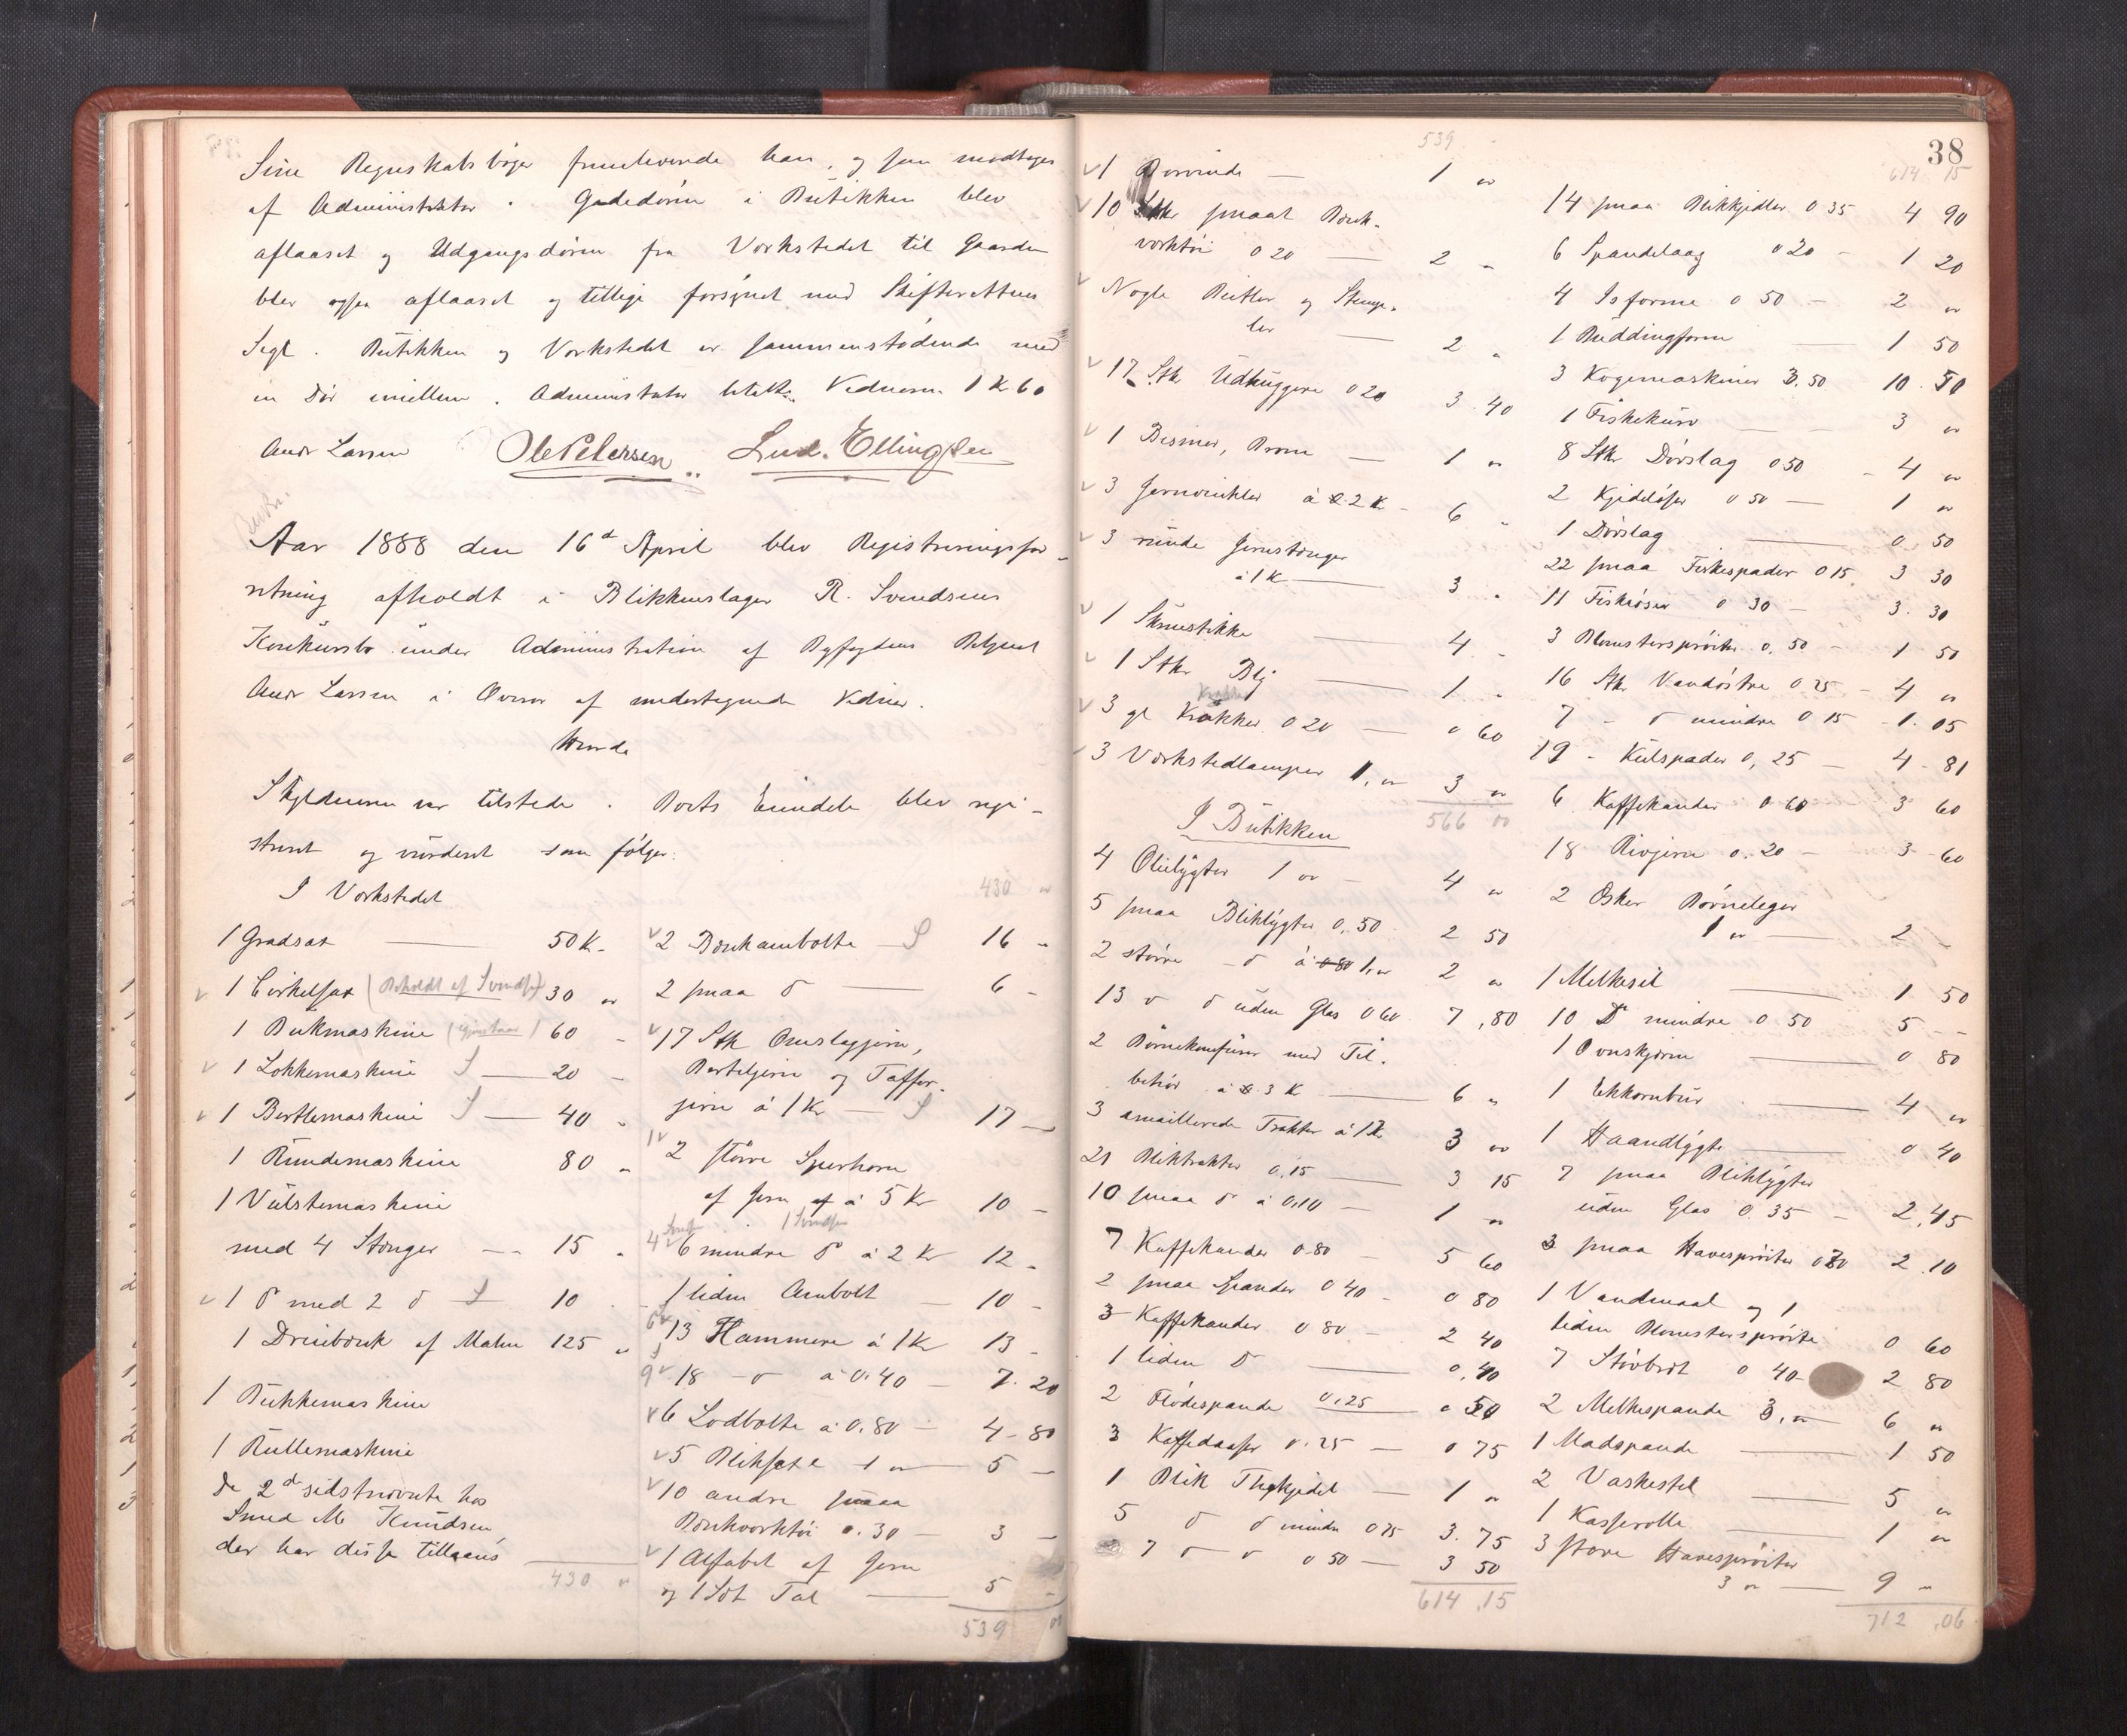 Sine Regnskabsbøger fremleverede han, og som modtoges
af Administrator. Gadedøren i Butikken blev
aflaaset og Udgangsdøren fra Værkstedet til Gaarden
blev ogsaa aflaaset og tillige forsynet med Skifterettens
Segl. Butikken og Værkstedet er sammenstødende med
en Dør imellem. Administrator betalte Vidnerne 1 K 60
Andr Larsen Ole Petersen Lud. Ellingsen
Aar 1888 den 16d April blev Registreringsfor-
retning afholdt i Blikkenslager R. Svendsens
Konkursbo under Administration af Byfogdens Betjent
Andr Larsen i Overvær af undertegnede Vidner.
Hvorda
Skyldneren var tilstede. Boets Eiendele blev regi-
streret og vurderet som følger:
I Værkstedet
1 Gradsax — 50 K -
1 Cirkelsax (Beholdt af Svendsen) 30 "
1 Bukmaskine 60 -
1 Lokkemaskine S — 20 -
1 Bertlemaskine S — 40 "
1 Rundemaskine 80 "
1 Vulstemaskine
med 4 Stænger — 15 "
1 do med 2 do S 10
1 Dreiebænk af Malm 125 "
1 Bukkemaskine
1 Rullemaskine
de 2de sidstnævnte hos
Smed M. Knudsen,
der har disse tillaans
430 "
430 "
2 Bænkambolte S 16 -
2 smaa do — 6 -
17 Stk Omslagjern,
Berteljern og Taffer-
jern á 1 Kr — S 17 —
2 større Sperhorn
af Jern á 5 Kr 10 -
6 mindre do á 2 Kr 12 -
1 liden Ambolt — 10 -
13 Hammere á 1 Kr 13 -
18 - do á 0.40 — 7.20
6 Lodbolte á 0.80 — 4-80
5 Bliksaxe 1 " — 5 —
10 andre smaa
Bænkværktøi 0.30 — 3 —
1 Alfabet af Jern
og 1 Sæt Tal — 5 -
539 00
539
1 Borvinde — 1 "
10 Stkr smaat Bænk-
værktøi 0 20 — 2 "
Nogle Beitler og Stemp-
ler — 2 "
17 Stk Udhuggere 0 20 3.40
1 Bismer, — 1 "
3 Jernvinkler á 2 K - 6 "
3 runde Jernstænger
á 1 K — 3 "
1 Skruestikke — 4 "
1 Stkr Bly — 1 "
3 gl Krakker 0 20 — 0 60
3 Værkstedlamper 1, " 3 "
566 00
I Butikken
4 Olielygter 1 " — 4 "
5 smaa Bliklygter 0.50 2 50
2 større - do á 0 80 1, " 2 "
13 " do uden Glas 0 60 7,80
2 Børnekomfurer med Til-
behør á 3 K — 6 "
3 emaillerede Trakter á 1 Kr 3 "
21 Bliktrakter 0,15 — 3 15
10 smaa do á 0,10 — 1 "
7 Kaffekander 0.80 — 5 60
2 smaa Spander 0 40 - 0 80
3 Kaffekander 0 80 — 2 40
1 liden do — 0,40
2 Flødespande 0,25 0 50
3 Kaffedaaser 0.25 — 0 75
1 Blik Thekjedel — 1 "
5 do do mindre 0 75 3.75
7 do " 0 50 — 3 50
614.15
38
614 15
14 smaa Blikkjedler 0 35 4 90
6 Spandelaag 0 20 - 1 20
4 Isforme 0 50 — 2 "
1 Buddingform — 1 50
3 Kogemaskiner 3.50 10.50
1 Fiskekurv — 3 "
8 Stkr Dørslag 0 50 - 4 "
2 0 50 — 1 "
1 Dørslag — 0 50
22 smaa Fiskespader 0 15 3 30
11 Fiskeøser 0 30 — 3.30
3 Blomstersprøiter 0.50 — 1 50
16 Stkr Vandøstre 0.25 - 4 "
7 - do mindre 0 15 - 1.05
19 - Kulspader 0,25 — 4-81
6 Kaffekander 0 60 3 60
18 Rivjern 0.20 — 3-60
2 Æsker Børnelegei
1 " — 2 -
1 Melkesil — 1 50
10 do mindre 0 50 5 --
1 Ovnskjerm — 0 80
1 Ekkornbur — 4 "
1 Haandlygte — 0 40
7 smaa Bliklygter
uden Glas 0.35 — 2,45
3 smaa Havesprøiter 0 70 2.10
1 Vandmaal og 1
liden Blomstersprøite 0 60
7 Støvbræt 0 40 - 2 80
2 Melkespande 3, " — 6 "
1 Madspande — 1 50
2 Vaskestel — 5 "
1 Kasserolle — 1 "
3 store Havesprøiter
3 " — 9 "
712.06